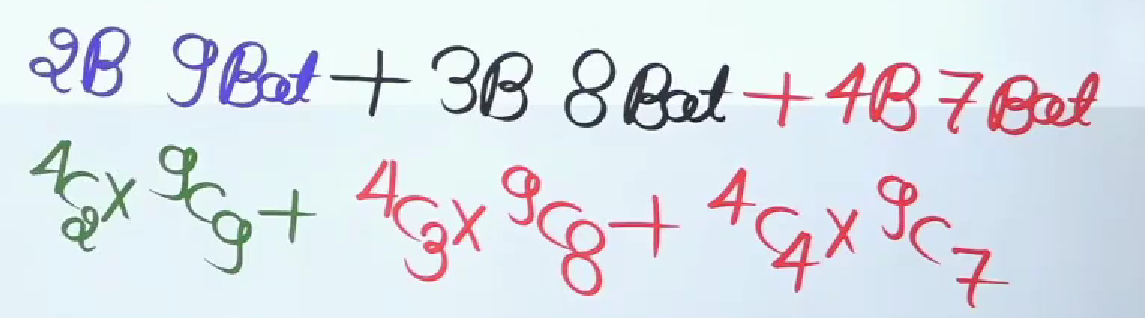 2B 9Bat + 3B 8Bat + 4B 7Bat
⁴C₂ x ⁹C₉ + ⁴C₃ x ⁹C₈ + ⁴C₄ x ⁹C₇